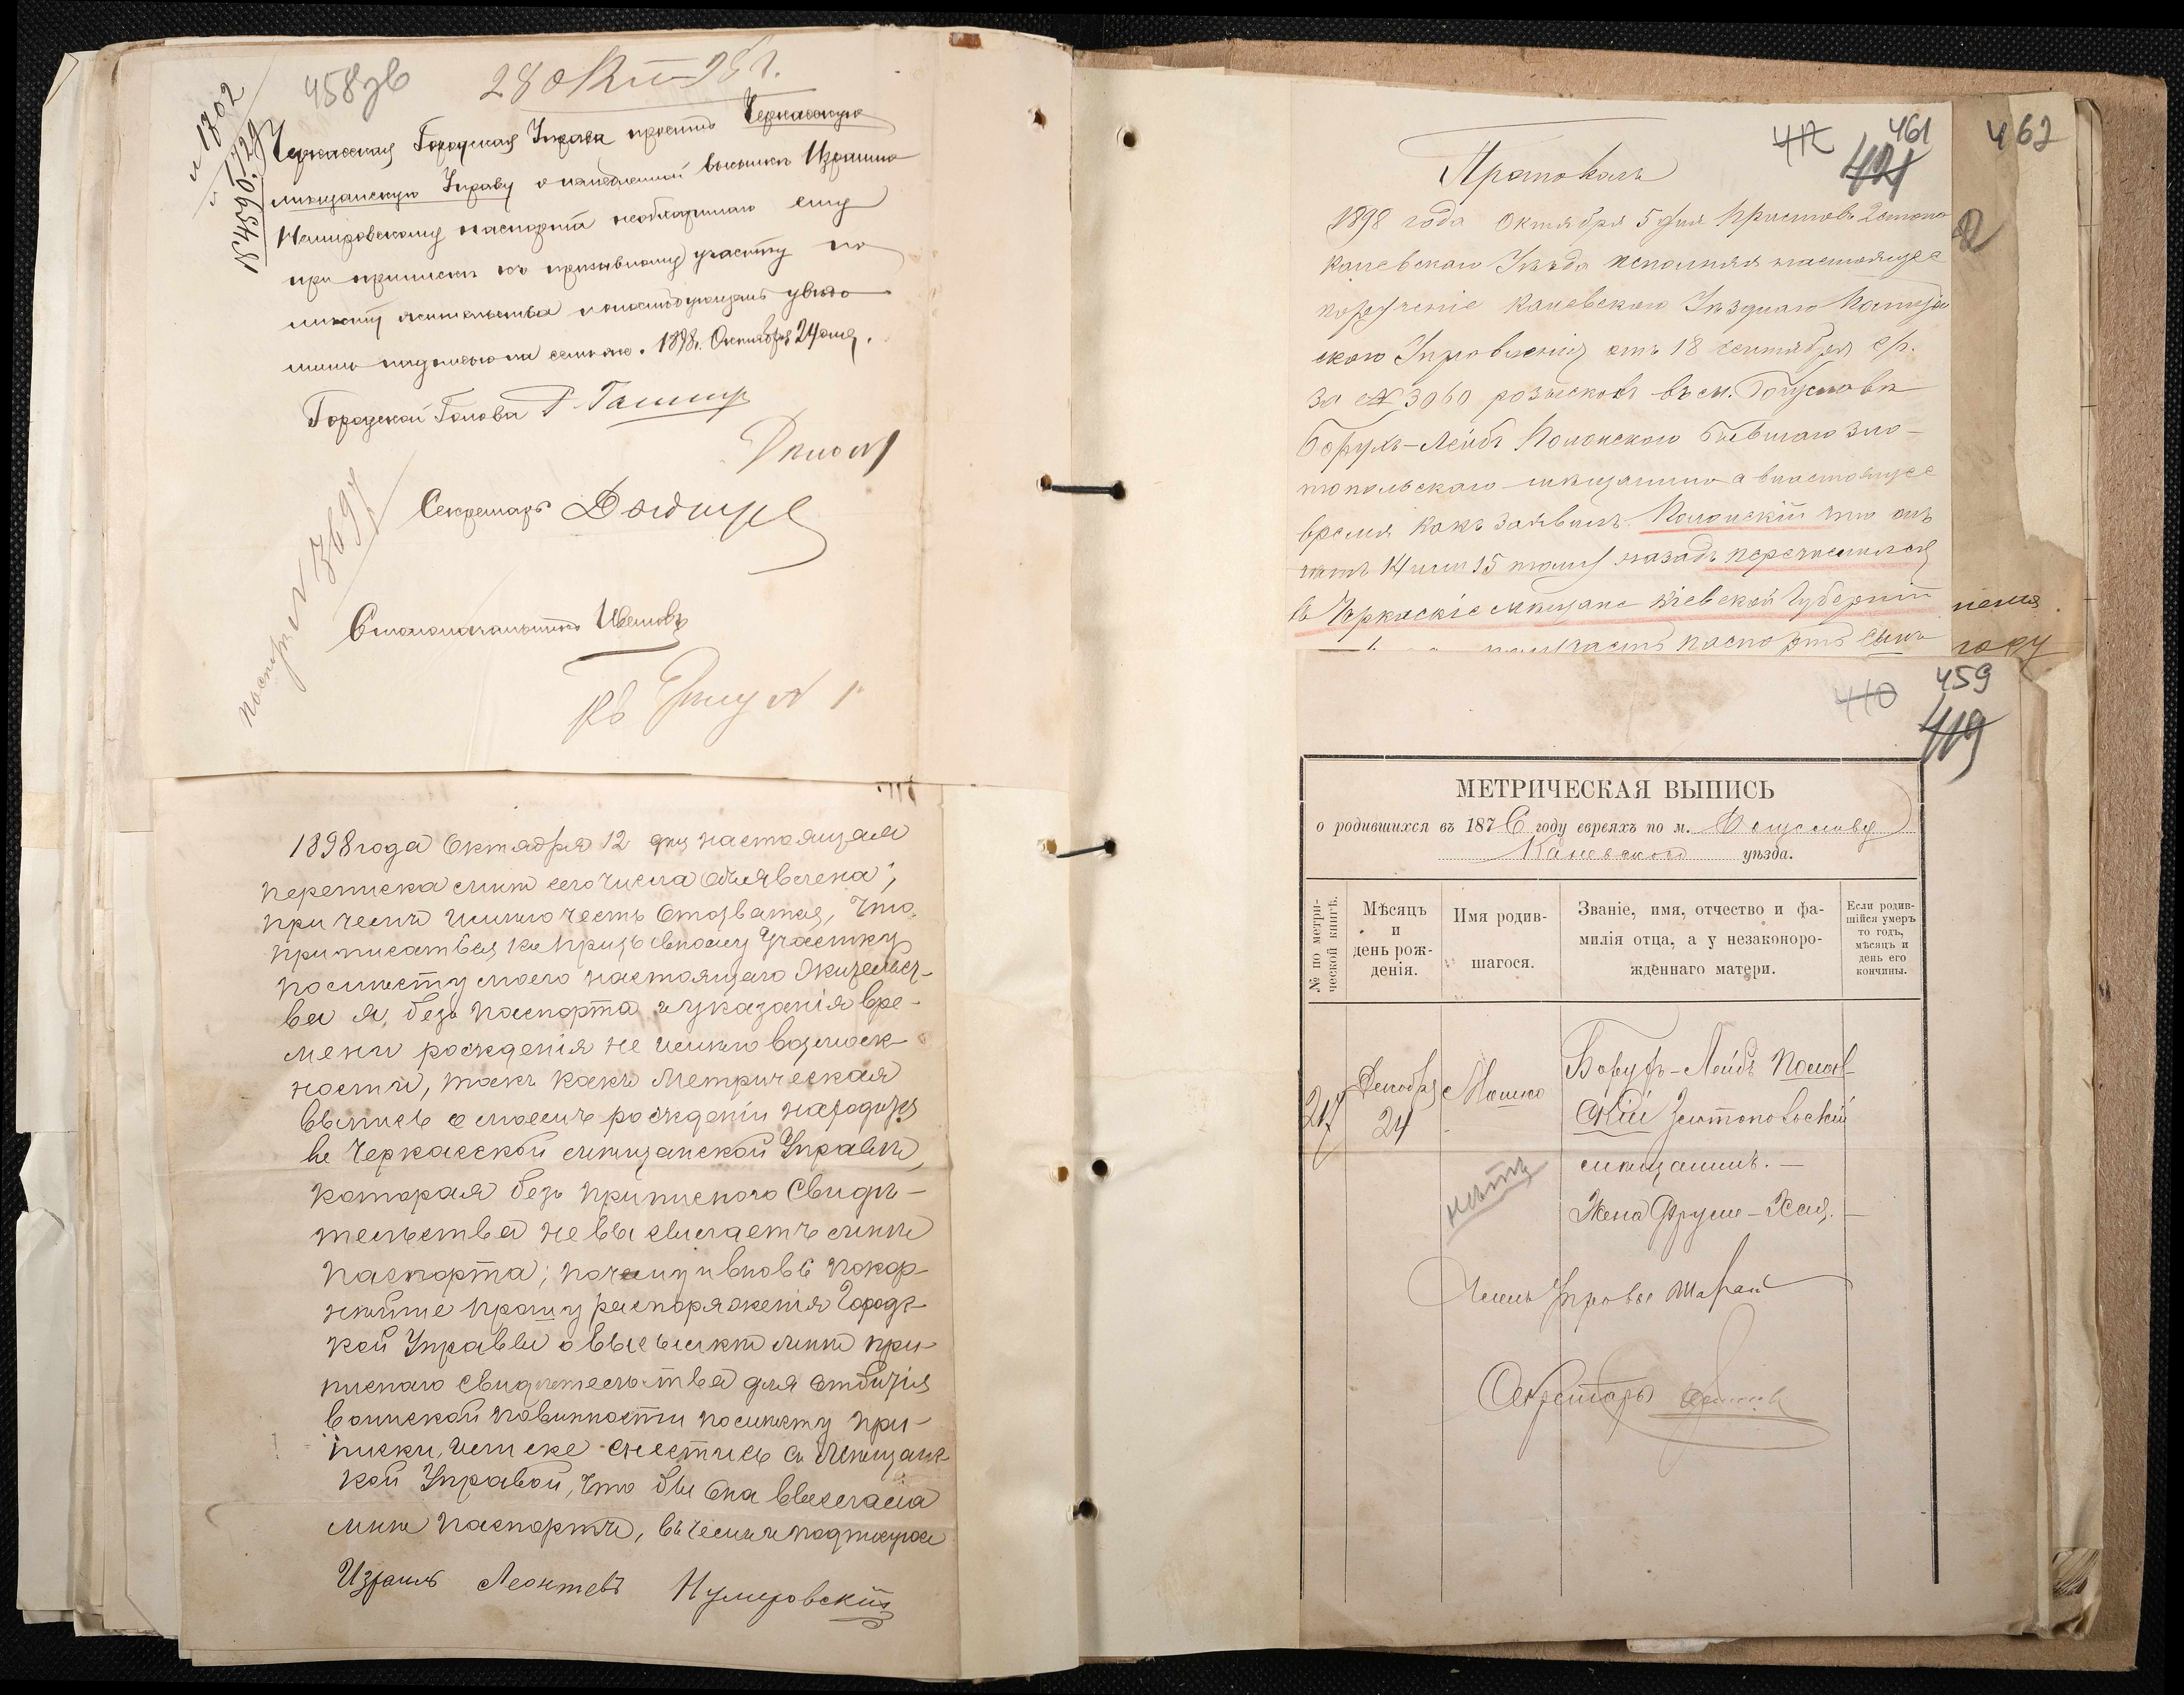 458зв
28 окт 98 г.
№ 1702
Черкасская Городская Управа проситъ Черкасскую
мѣщанскую Управу о немедленной высылкѣ Израилю
паспорта необходимаго ему
при припискѣ къ призывному участку по
мѣсту жительства и о послѣдующемъ увѣдо
мить надписью на семъ же. 1898 г. Октября 24 дня.
Городской Голова
Секретарь
Столоначальникъ Ивановъ
№ 3697
1898 года Октября 12 дня настоящая
переписка мнѣ сего числа объявлена;
при чемъ имѣю честь отозватся, что
приписаться къ призывному участку
по мѣсту моего настоящаго жительст-
ва я, безъ паспорта и указанія вре-
мени рожденія не имѣю возмож-
ности, такъ какъ Метрическая
выпись о моемъ рожденіи находится
въ Черкасской мѣщанской Управѣ,
которая безъ приписного Свидѣ-
тельства не высылаетъ мнѣ
паспорта; почему и вновь покор-
нѣйше прошу распоряженія Городс-
кой Управы о высылкѣ мнѣ при-
писнаго свидѣтельства для отбытія
воинской повинности по мѣсту при-
писки, или же снестись съ Мѣщанс-
кой Управой, что бы она выслала
мнѣ паспортъ, въ чемъ и подпишусь
Израиль Леонтевъ
461
412
421
462
Протоколъ
1898 года Октября 5 дня Приставъ 2 стана
Каневскаго Уѣзда исполняя настоящее
порученіе Каневскаго Уѣзднаго Полицей
скаго Управленія отъ 18 сентября с/г.
за № 3060 розыскавъ въ м. Богуславѣ
Борухъ-Лейбъ Полонскаго бывшаго Зла-
топольскаго мѣщанина а внастоящее
время какъ заявилъ Полонскій что онъ
лѣтъ 14 или 15 тому назадъ перечислился
въ Черкаскіе мѣщане Кіевской Губерніи
паспортъ сынъ
году
459
410
419
МЕТРИЧЕСКАЯ ВЫПИСЬ
о родившихся въ 1876 году евреяхъ по м. Богуславу
Каневского уѣзда.
№ по метри-
ческой книгѣ.
Мѣсяцъ
и
день рож-
денія.
Имя родив-
шагося.
Званіе, имя, отчество и фа-
милія отца, а у незаконоро-
жденнаго матери.
Если родив-
шійся умеръ
то годъ,
мѣсяцъ и
день его
кончины.
217
Декабря
24
Мошко
Борухъ-Лейбъ Полон-
скій Златопольскій
мѣщанинъ. —
Жена Фруме-Хая. —
нѣтъ
Членъ Управы
Секретарь